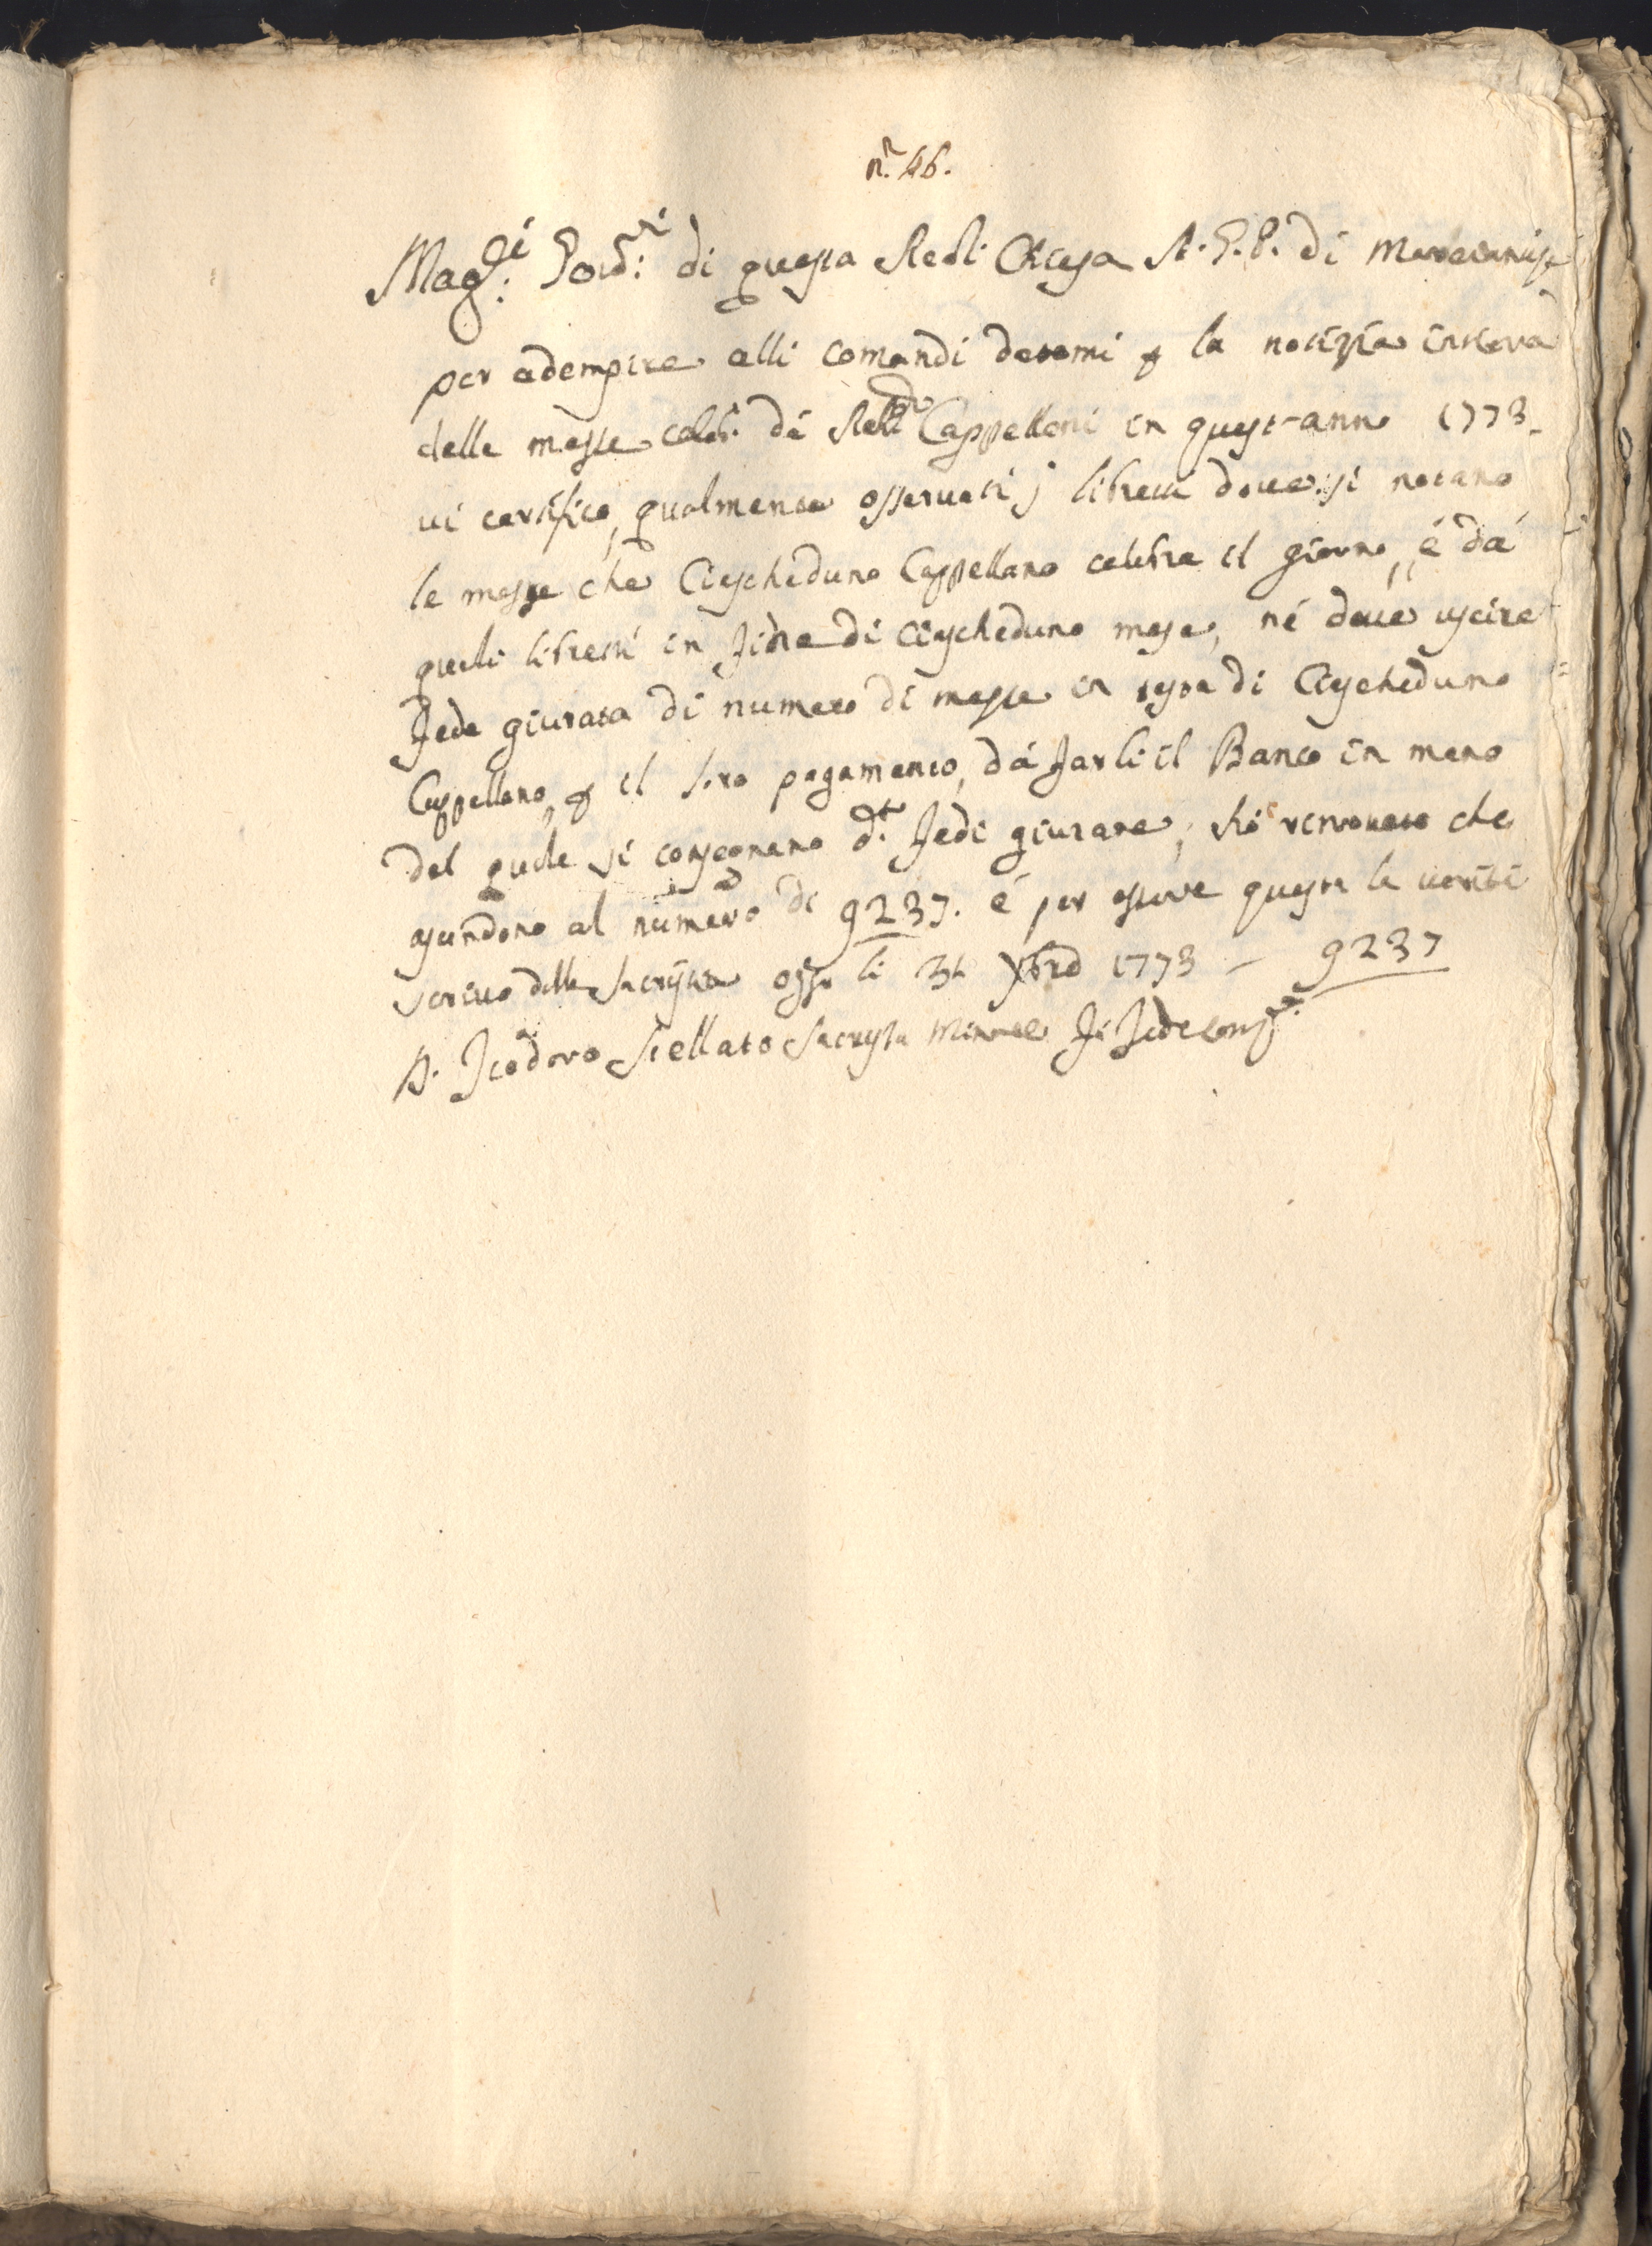 nº. 46.
Mag.ci Gov.ri di questa Real Chiesa A. G. P. di
per adempire alli comandi datomi per la notizia intiera
delle messe celebr. da Rev.di Cappellani in quest'anno 1773.
vi certifico, qualmente osservati j libretti dove si notano
le messe che Ciascheduno Cappellano celebra il giorno, é dá
quali libretti in fine di ciascheduno mese, né deve uscire
fede giurata di numero di messe in testa di Ciascheduno
Cappellano, per il loro pagamento, dá farli il Banco in mano
del quale si consegnano d.te fedi giurate, hó ritrovato che
ascendono al numero di 9237. é per essere questa la veritá
scrivo dalla Sacristia oggi li 31 Xbre 1773 — 9237
D. Teodoro Stellato Sacrista Minore fi fede come sopra